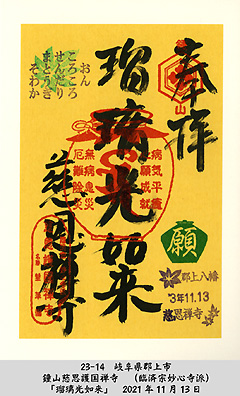 奉拝
瑠璃光如来
慈恩禅寺
おん
ころころ
せんだり
まとうぎ
そわか
病気平癒
心願成就
無病息災
厄難除災
願
郡上八幡
'3年11.13
慈恩禅寺
23-14　岐阜県郡上市
鐘山慈恩護国禅寺　　(臨済宗妙心寺派)
「瑠璃光如来」　2021年11月13日